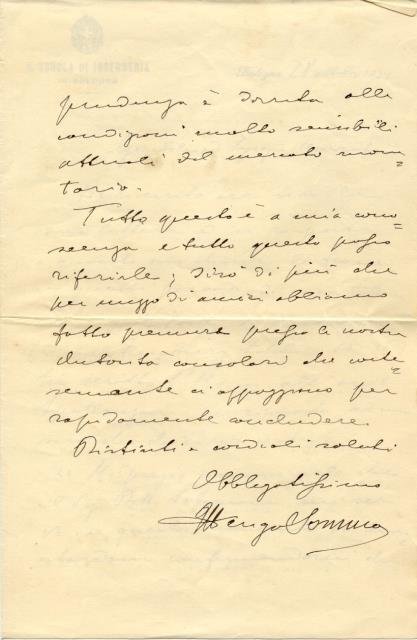 R. SCUOLA DI INGEGNERIA
BOLOGNA
prudenza è dovuta alle
condizioni molto sensibili
attuali del mercato mone=
tario.
Tutto questo è a mia cono=
scenza e tutto questo posso
riferirle; dirò di più che
per mezzo di amici abbiamo
fatto premura presso le nostre
Autorità consolari che corte=
semente ci appoggiano per
rapidamente concludere.
Distinti e cordiali saluti
Obbligatissimo